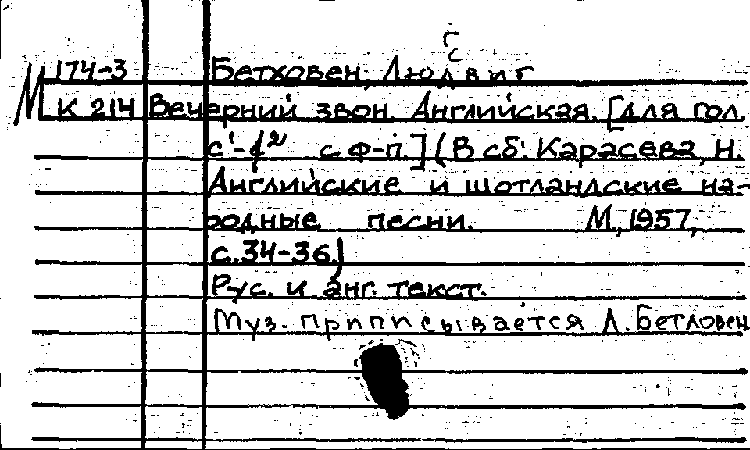 С
М 174-3 Бетховен, Людвиг
К 214 Вечерний звон. Английская. [Для гол.
с¹-f² с ф-п.] (В сб: Карасева, Н.
Английские и шотландские на-
родные песни. М, 1957,
с.34-36)
Рус. и анг. текст.
Муз. приписывается Л. Бетховен